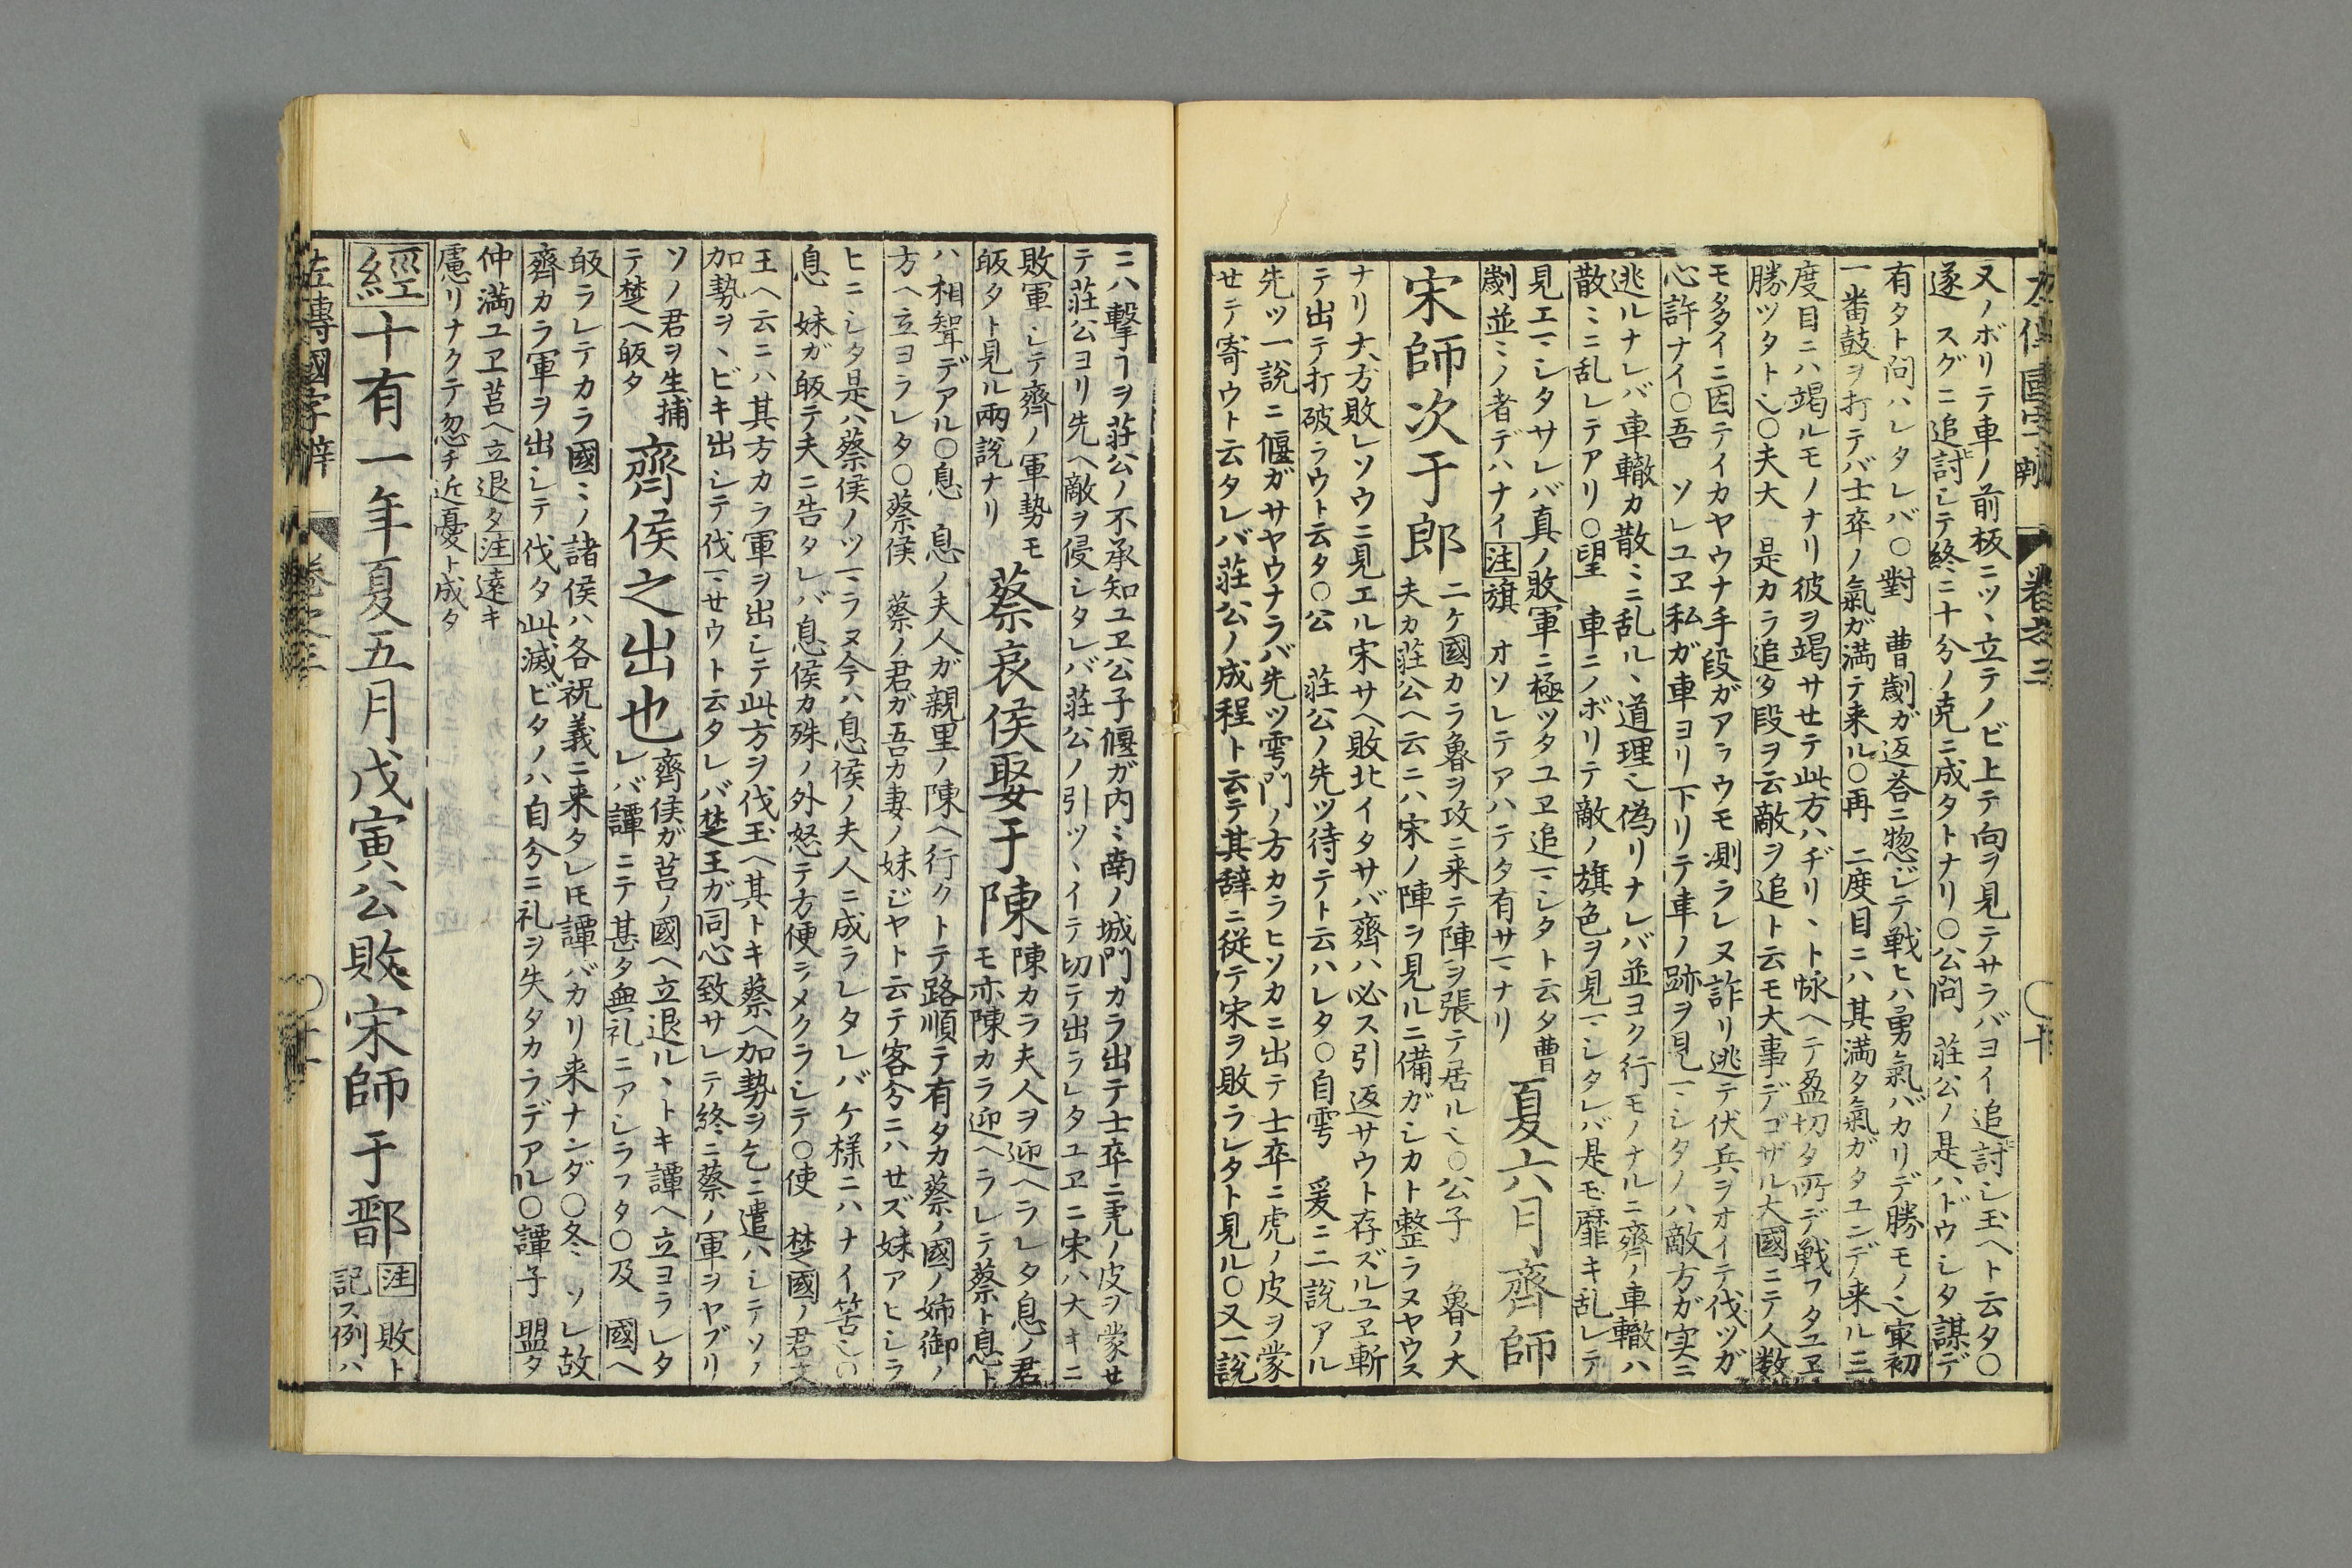 又ノボリテ車ノ前板ニツヽ立テノビ上テ向ヲ見テサラバヨイ追討シ玉ヘト云タ〇
遂 スグニ追討シテ終ニ十分ノ克ニ成タトナリ〇公問 荘公ノ是ハドウシタ謀デ
有タト問ハレタレバ〇對 曹劌ガ返荅ニ惣ジテ戦ヒハ勇氣バカリデ勝モノ〆㝡初
一番鼓ヲ打テバ士卒ノ氣ガ満テ来ル〇再 二度目ニハ其満タ氣ガタユンデ来ル三
度目ニハ竭ルモノナリ彼ヲ竭サセテ此方ハヂリヽト怺ヘテ盈切タ所デ戦フタユヱ
勝ツタト〆〇夫大 是カラ追タ段ヲ云敵ヲ追ト云モ大事デゴザル大國ニテ人数
モ多イニ因テイカヤウナ手段ガアラウモ測ラレヌ詐リ逃テ伏兵ヲオイテ伐ツガ
心許ナイ〇吾 ソレユヱ私ガ車ヨリ下リテ車ノ跡ヲ見ヿシタノハ敵方ガ実ニ
逃ルナレバ車轍カ散ミニ乱ルヽ道理〆偽リナレバ並ヨク行モノナルニ齊ノ車轍ハ
散ミニ乱レテアリ〇望 車ニノボリテ敵ノ旗色ヲ見ヿシタレバ是モ靡キ乱レテ
見エヿシタサレバ真ノ敗軍ニ極ツタユヱ追ヿシタト云タ曹
劌並ミノ者デハナイ注旗 オソレテアハテタ有サヿナリ
夏六月齊師
宋師次于郎
二ケ國カラ魯ヲ攻ニ来テ陣ヲ張テ居ル〆〇公子 魯ノ大
夫カ荘公ヘ云ニハ宋ノ陣ヲ見ルニ備ガシカト整ラヌヤウス
ナリ大方敗レソウニ見エル宋サヘ敗北イタサバ齊ハ必ス引返サウト存ズルユヱ斬
テ出テ打破ラウト云タ〇公 荘公ノ先ツ待テト云ハレタ〇自雩 爰ニ二説アル
先ツ一説ニ偃ガサヤウナラバ先ツ雩門ノ方カラヒソカニ出テ士卒ニ虎ノ皮ヲ蒙
セテ寄ウト云タレバ荘公ノ成程ト云テ其辞ニ従テ宋ヲ敗ラレタト見ル〇又一説
ニハ撃ヿヲ荘公ノ不承知ユヱ公子偃ガ内ミ南ノ城門カラ出テ士卒ニ虎ノ皮ヲ蒙セ
テ荘公ヨリ先ヘ敵ヲ侵シタレバ荘公ノ引ツヽイテ切テ出ラレタユヱニ宋ハ大キニ
敗軍シテ齊ノ軍勢モ
皈タト見ル兩説ナリ
蔡哀侯娶于陳
陳カラ夫人ヲ迎ヘラレタ息ノ君
モ亦陳カラ迎ヘラレテ蔡ト息ト
ハ相聟デアル〇息 息ノ夫人ガ親里ノ陳ヘ行クトテ路順テ有タカ蔡ノ國ノ姉御ノ
方ヘ立ヨラレタ〇蔡侯 蔡ノ君ガ吾カ妻ノ妹ジヤト云テ客分ニハセズ妹アヒシラ
ヒニシタ是ハ蔡侯ノツヿラヌ今ハ息侯ノ夫人ニ成ラレタレバケ様ニハナイ筈〆〇
息 妹ガ皈テ夫ニ告タレバ息侯カ殊ノ外怒テ方便ラメクラシテ〇使 楚國ノ君文
王ヘ云ニハ其方カラ軍ヲ出シテ此方ヲ伐玉ヘ其トキ蔡ヘ加勢ヲ乞ニ遣ハシテソノ
加勢ヲヽビキ出シテ伐ヿセウト云タレバ楚王ガ同心致サレテ終ニ蔡ノ軍ヲヤブリ
ソノ君ヲ生捕
テ楚ヘ皈タ
齊侯之出也
齊侯ガ莒ノ國ヘ立退ルヽトキ譚ヘ立ヨラレタ
レバ譚ニテ甚タ無礼ニアシラフタ〇及 國ヘ
皈ラレテカラ國ミノ諸侯ハ各祝義ニ来タレ𪜈譚バカリ来ナンダ〇冬 ソレ故
齊カラ軍ヲ出シテ伐タ此滅ビタノハ自分ニ礼ヲ失タカラデアル〇譚子 盟タ
仲満ユヱ莒ヘ立退タ注遠キ
慮リナクテ忽チ近憂ト成タ
經十有一年夏五月戊寅公敗宋師于鄑
注 敗ト
記ス例ハ
左傳國字辨